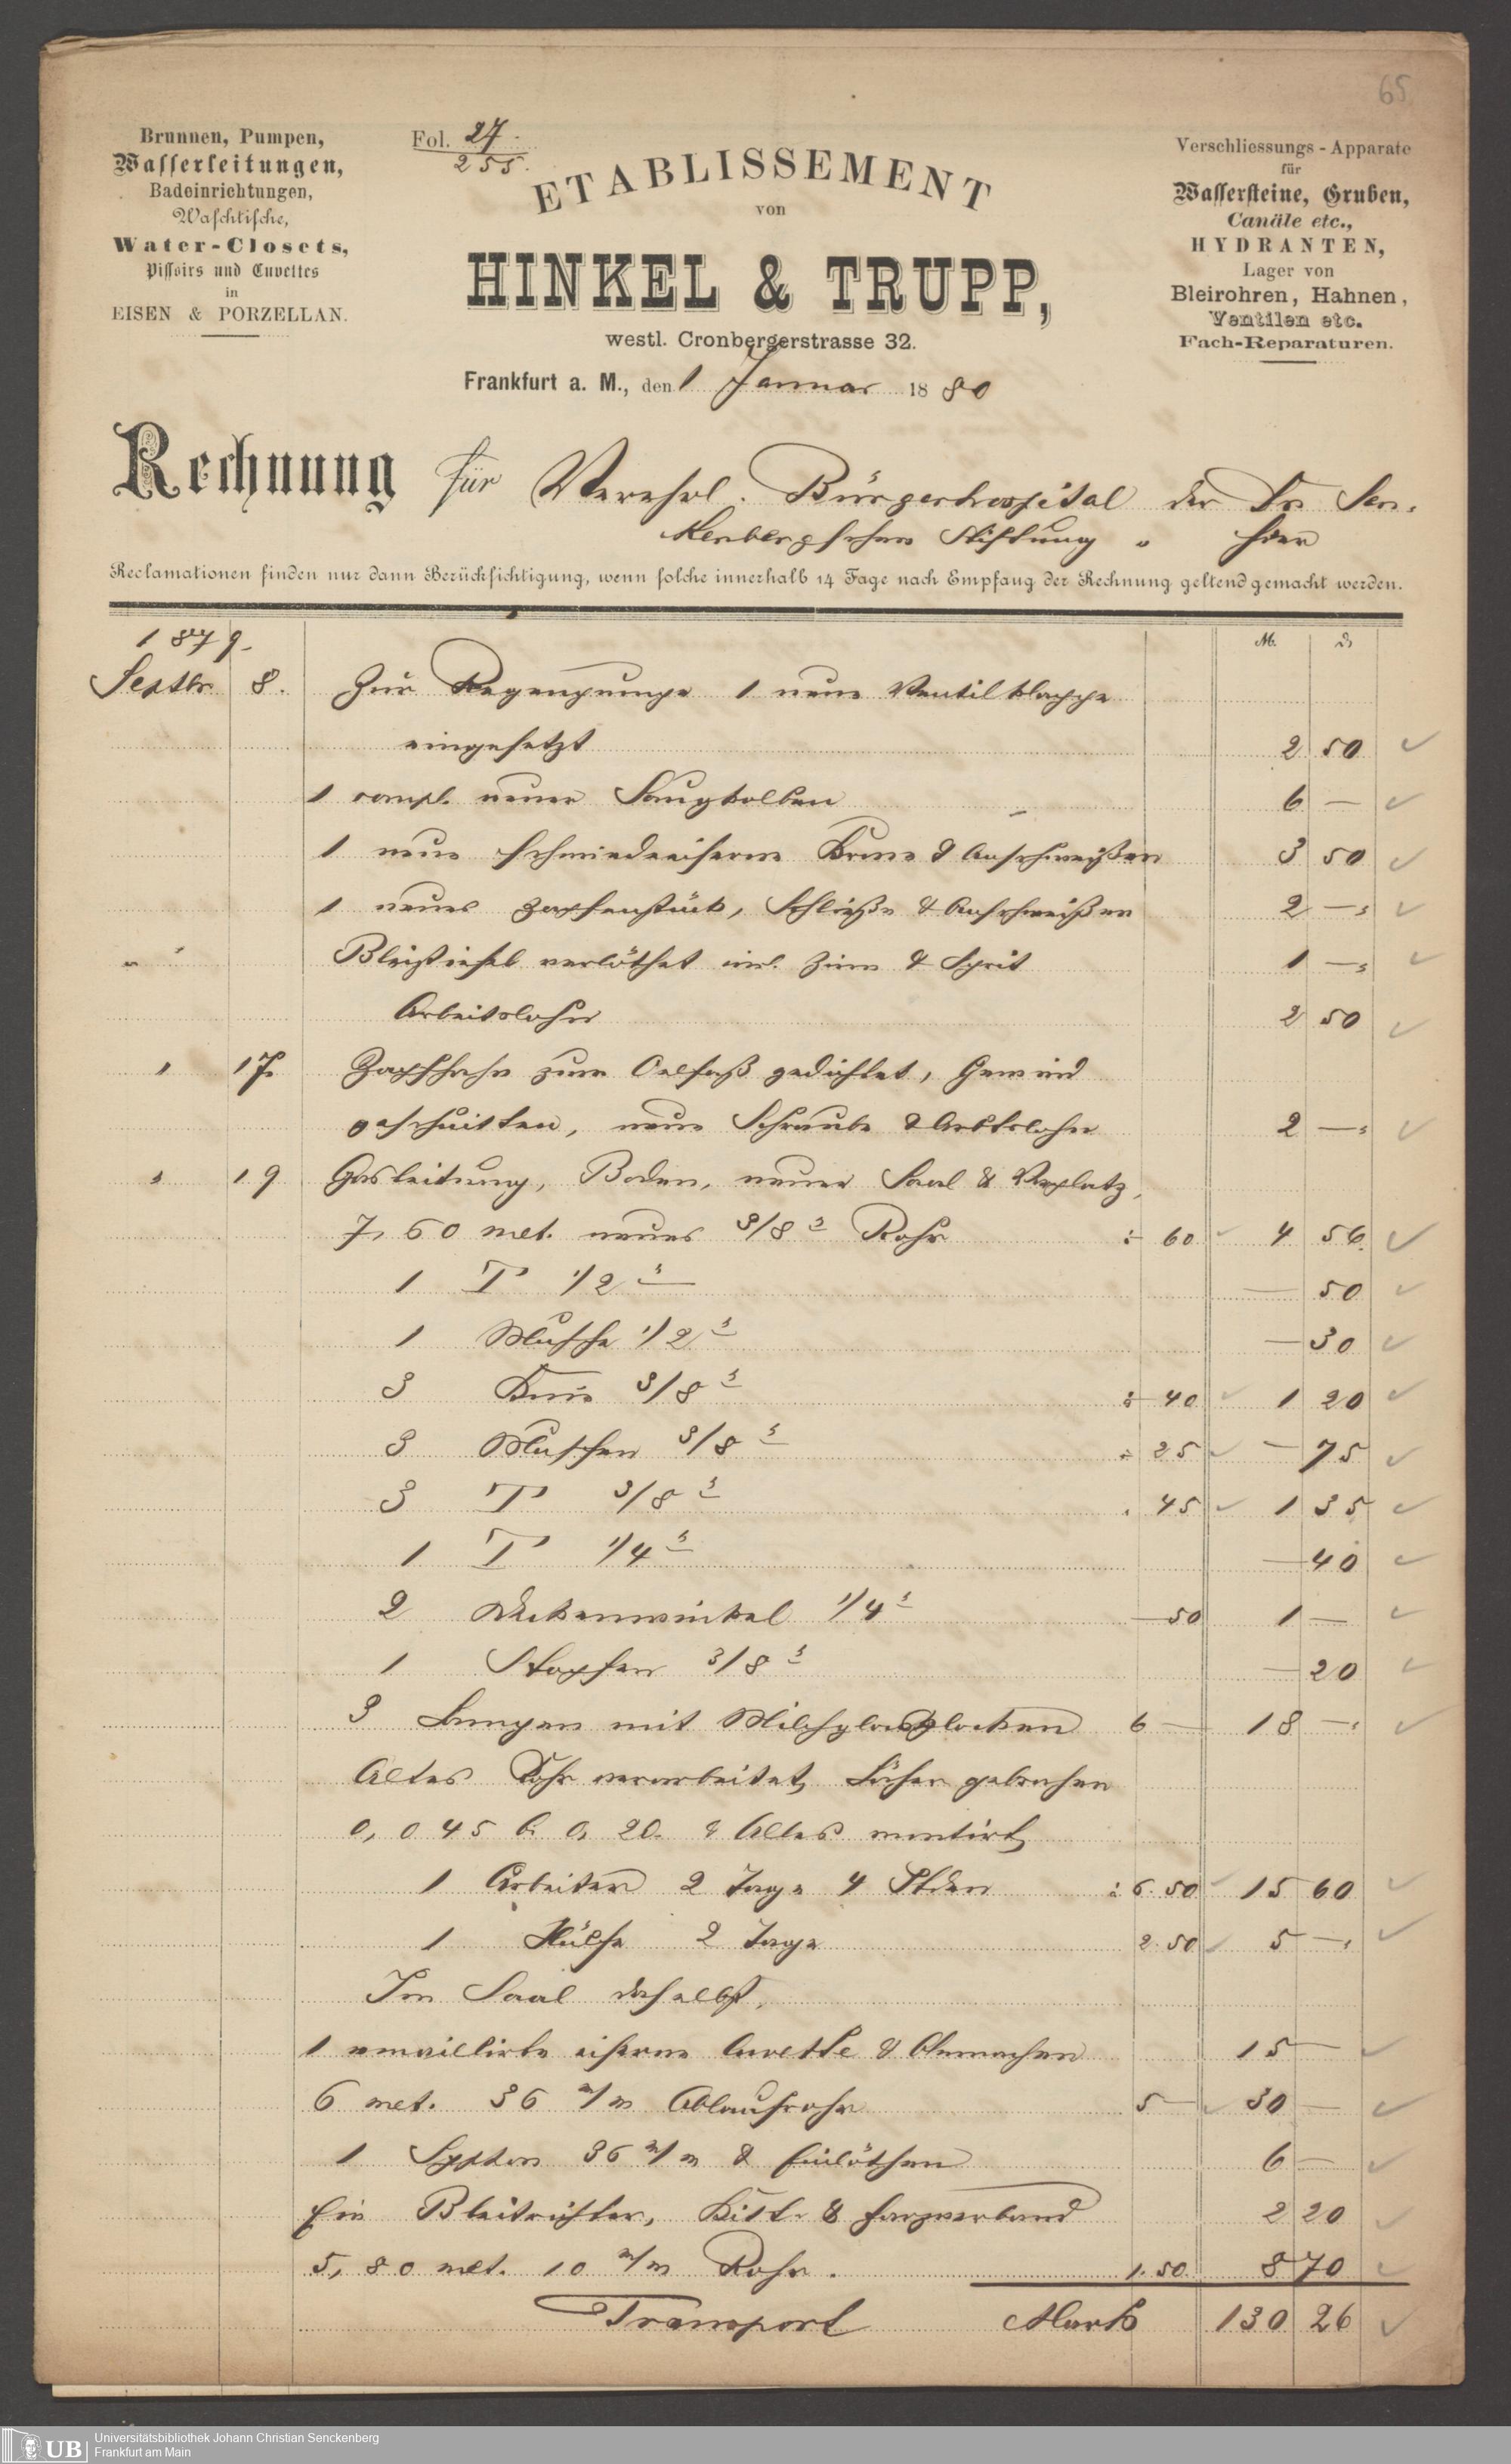 65
Brunnen, Pumpen,
Wasserleitungen,
Badeinrichtungen,
Waschtische,
Water-Closets,
Pissoirs und Cuvettes
in
EISEN & PORZELLAN.
Fol. 27.
255.
ETABLISSEMENT
von
HINKEL & TRUPP,
westl. Cronbergerstrasse 32.
Frankfurt a. M., den 1 Januar 1880
Verschliessungs-Apparate
für
Wassersteine, Gruben,
Canäle etc.,
HYDRANTEN,
Lager von
Bleirohren, Hahnen,
Ventilen etc.
Fach-Reparaturen.
Rechnung für Verehrl. Bürgerhospital der Dr. Sen-
kenbergschen Stiftung, hier
Reclamationen finden nur dann Berücksichtigung, wenn solche innerhalb 14 Tage nach Empfang der Rechnung geltend gemacht werden.
1879. M. ₰
Septbr. 8. Zur Regenpumpe 1 neue Ventilklappe
eingesetzt 2 50
1 compl. neuer Saugkolben 6 —
1 neue schmiedeeiserne & Anschweißen 3 50
1 neues Zapfenstück, Schließe & Anschweißen 2 —
" " verlöthet incl. Zinn & Sprit 1 —
Arbeitslohn 2 50
" 17. Zapfhahn zum Oelfaß gedichtet, Gewind
geschnitten, neue Schraube & Arbtslohn 2 —
" 19 Gasleitung, Boden, neuer Saal & Vorplatz,
7,60 met. neues 3/8" Rohr à 60 4 56
1 T 1/2" — 50
1 Muffe 1/2" — 30
3 Knie 3/8" à 40 1 20
3 Muffen 3/8" à 25 — 75
3 T 3/8" 45 1 35
1 T 1/4" — 40
2 Deckenwinkel 1/4" — 50 1 —
1 Stopfen 3/8" — 20
3 Lampen mit Milchglasglocken 6 — 18 —
Altes Rohr verarbeitet, Löcher gebrochen
0,045 b. 0,20. & Alles montirt,
1 Arbeiter 2 Tage 4 Stden à 6.50 15 60
1 Hülfe 2 Tage 2.50 5 —
Im Saal daselbst,
1 emaillirte eiserne Cuvette & Anmachen 15 —
6 met. 36 m/m Ablaufrohr 5 — 30 —
1 Syphon 36 m/m & Einlöthen 6 —
Ein Bleitrichter, Kitt & Harzverband 2 20
5,80 met. 10 m/m Rohr. 1.50 8 70
Transport Mark 130 26
UB
Universitätsbibliothek Johann Christian Senckenberg
Frankfurt am Main